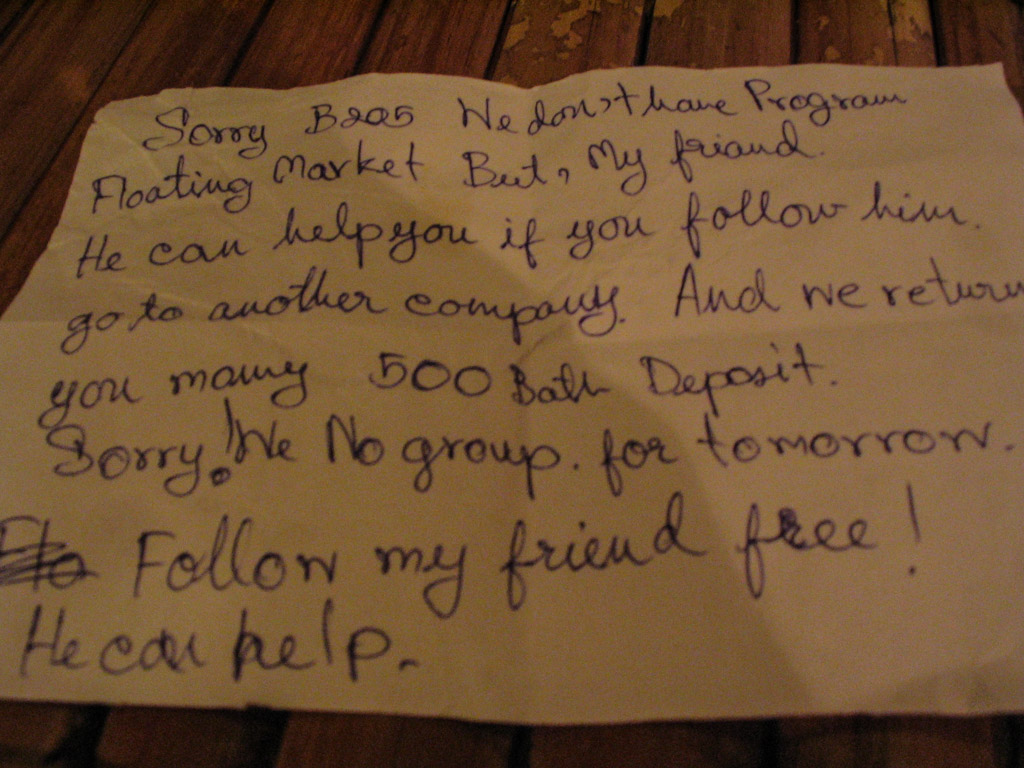 Sorry B205 We don't have Program
Floating Market But, My friand.
He can help you if you follow him.
go to another company. And we return
you mamy 500 Bath Deposit.
Sorry! We No group. for tomorrow.
Follow my friend free!
He can help.